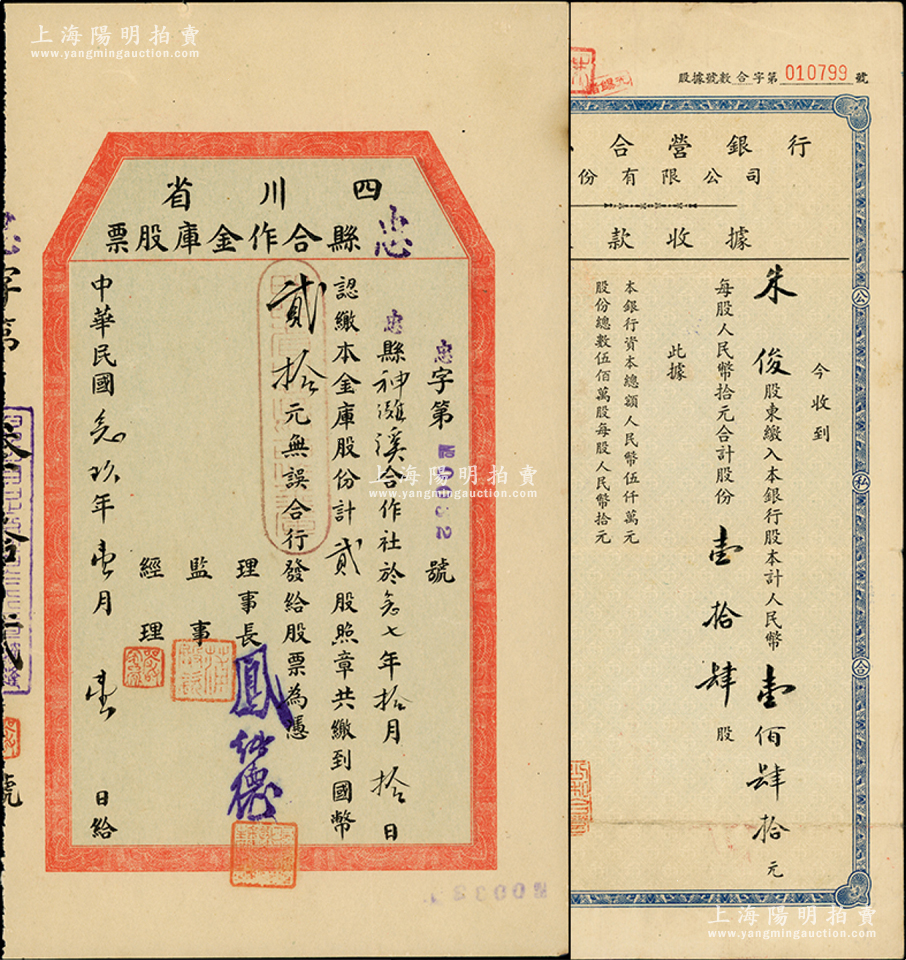 上海陽明拍賣
www.yangmingauction.com
四川省
忠縣合作金庫股票
忠字第 號
忠縣神灘溪合作社於念七年拾月拾日
認繳本金庫股份計貳股照章共繳到國幣
貳拾元無誤合行發給股票為憑
理事長
監事
經理
中華民國念玖年壹月壹日給
字第
號
股據號數合字第010799號
合營銀行
份有限公司
款收據
今收到
朱俊股東繳入本銀行股本計人民幣壹佰肆拾元
每股人民幣拾元合計股份壹拾肆股
此據
本銀行資本總額人民幣伍仟萬元
股份總數伍佰萬股每股人民幣拾元
公
私
合
上海陽明拍賣
www.yangmingauction.com
上海陽明拍賣
www.yangmingauction.com